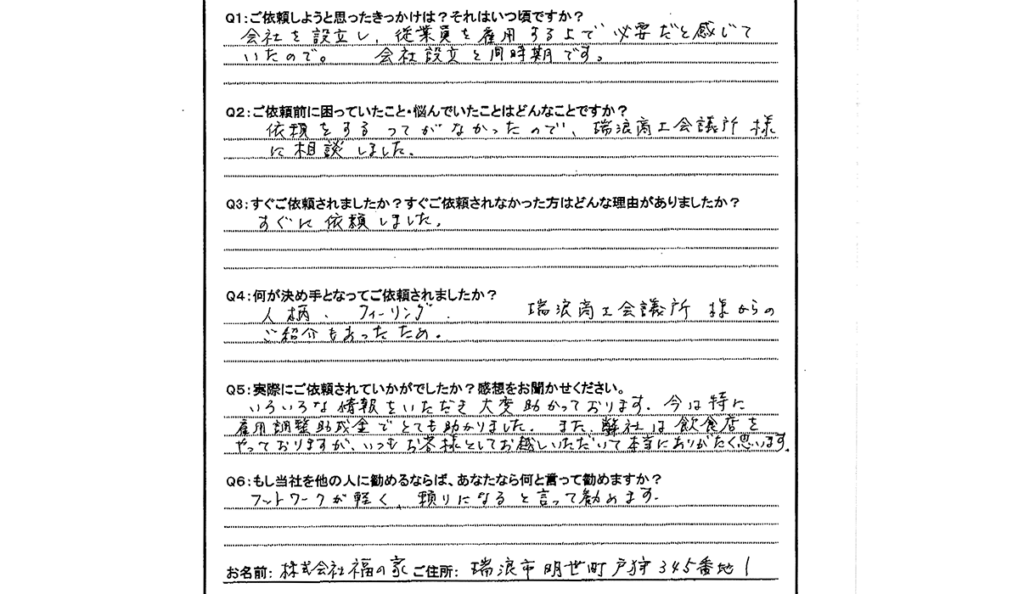 Q1:ご依頼しようと思ったきっかけは？それはいつ頃ですか？
会社を設立し、従業員を雇用する上で必要だと感じて
いたので。　会社設立と同時期です。
Q2:ご依頼前に困っていたこと・悩んでいたことはどんなことですか？
依頼をするつてがなかったので、瑞浪商工会議所様
に相談しました。
Q3:すぐご依頼されましたか？すぐご依頼されなかった方はどんな理由がありましたか？
すぐに依頼しました。
Q4:何が決め手となってご依頼されましたか？
人柄、フィーリング．　瑞浪商工会議所様からの
ご紹介もあったため。
Q5:実際にご依頼されていかがでしたか？感想をお聞かせください。
いろいろな情報をいただき大変助かっております．今は特に
雇用調整助成金でとても助かりました。また、弊社は飲食店を
やっておりますが、いつもお客様としてお越しいただいて本当にありがたく思います。
Q6:もし当社を他の人に勧めるならば、あなたなら何と言って勧めますか？
フットワークが軽く、頼りになると言って勧めます．
お名前: 株式会社福の家 ご住所: 瑞浪市明世町戸狩345番地1